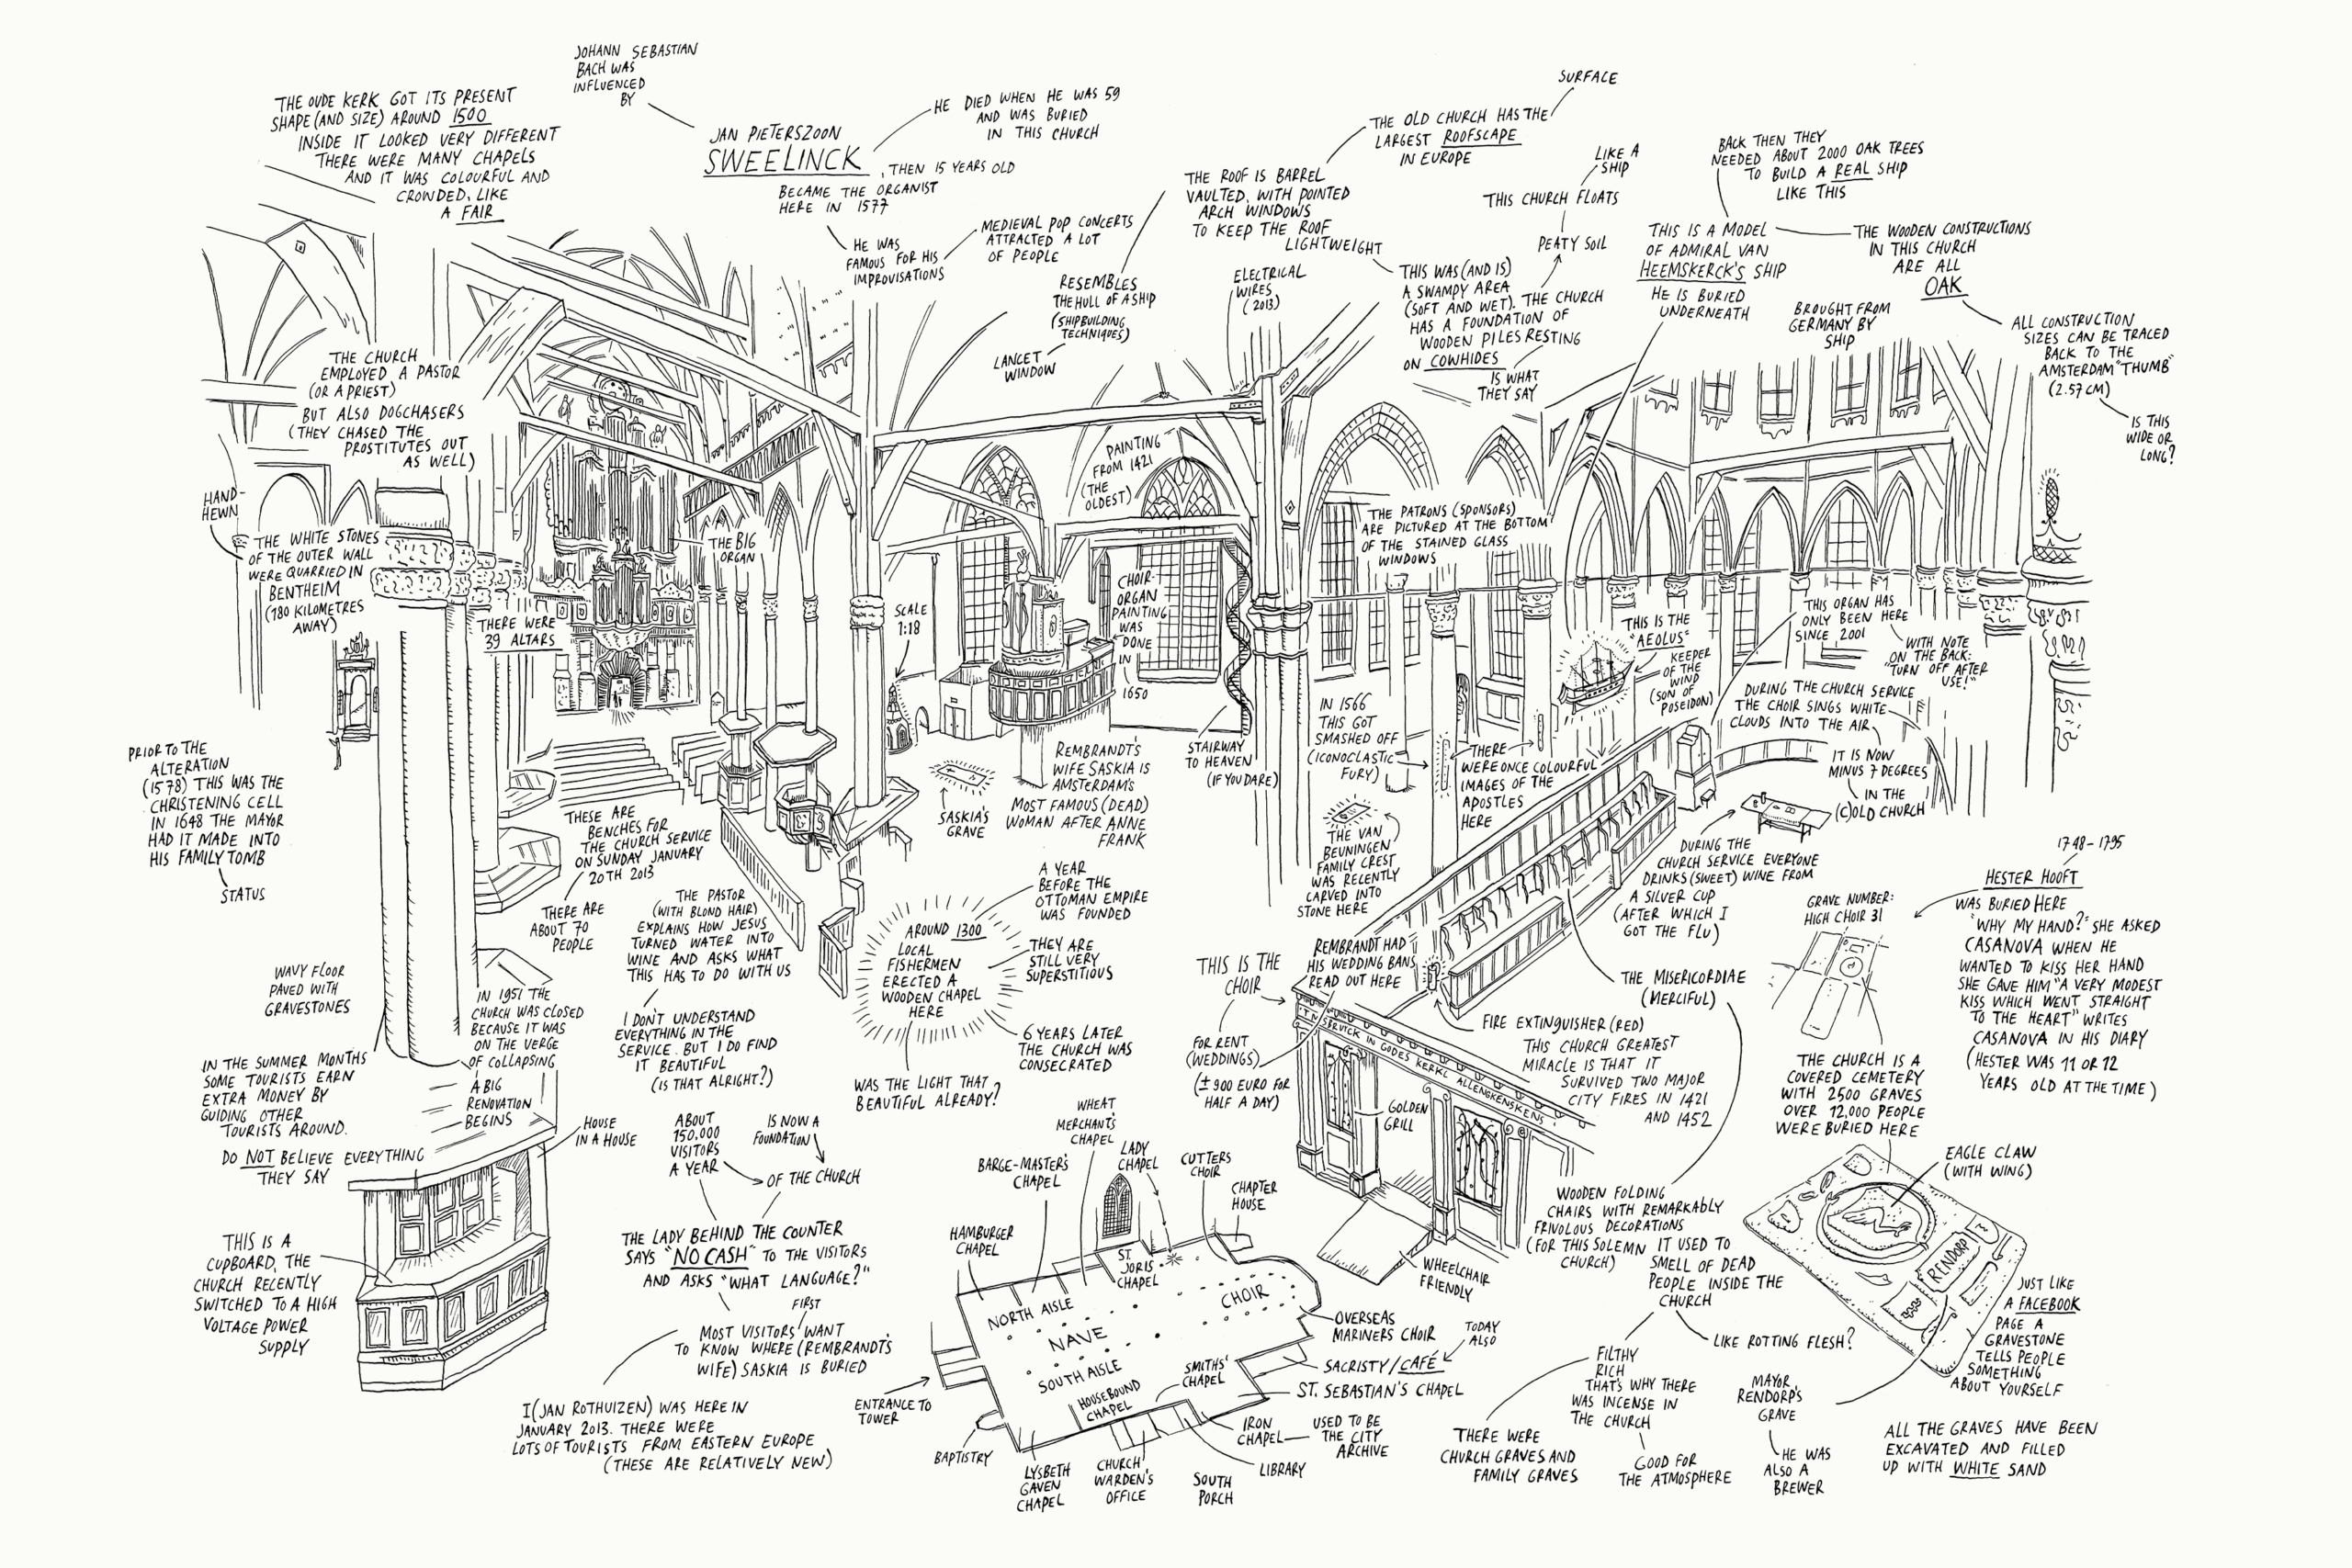 JOHANN SEBASTIAN
BACH WAS
INFLUENCED
BY
THE OUDE KERK GOT ITS PRESENT
SHAPE (AND SIZE) AROUND 1500
INSIDE IT LOOKED VERY DIFFERENT
THERE WERE MANY CHAPELS
AND IT WAS COLOURFUL AND
CROWDED, LIKE
A FAIR
JAN PIETERSZOON
SWEELINCK
, THEN 15 YEARS OLD
BECAME THE ORGANIST
HERE IN 1577
HE DIED WHEN HE WAS 59
AND WAS BURIED
IN THIS CHURCH
HE WAS
FAMOUS FOR HIS
IMPROVISATIONS
MEDIEVAL POP CONCERTS
ATTRACTED A LOT
OF PEOPLE
SURFACE
THE OLD CHURCH HAS THE
LARGEST ROOFSCAPE
IN EUROPE
THE ROOF IS BARREL
VAULTED, WITH POINTED
ARCH WINDOWS
TO KEEP THE ROOF
LIGHTWEIGHT
RESEMBLES
THE HULL OF A SHIP
(SHIPBUILDING
TECHNIQUES)
LANCET
WINDOW
ELECTRICAL
WIRES
(2013)
LIKE A
SHIP
THIS CHURCH FLOATS
PEATY SOIL
THIS WAS (AND IS)
A SWAMPY AREA
(SOFT AND WET). THE CHURCH
HAS A FOUNDATION OF
WOODEN PILES RESTING
ON COWHIDES
IS WHAT
THEY SAY
BACK THEN THEY
NEEDED ABOUT 2000 OAK TREES
TO BUILD A REAL SHIP
LIKE THIS
THIS IS A MODEL
OF ADMIRAL VAN
HEEMSKERCK'S SHIP
HE IS BURIED
UNDERNEATH
THE WOODEN CONSTRUCTIONS
IN THIS CHURCH
ARE ALL
OAK
BROUGHT FROM
GERMANY BY
SHIP
ALL CONSTRUCTION
SIZES CAN BE TRACED
BACK TO THE
AMSTERDAM "THUMB"
(2.57 CM)
IS THIS
WIDE OR
LONG?
THE CHURCH
EMPLOYED A PASTOR
(OR A PRIEST)
BUT ALSO DOGCHASERS
(THEY CHASED THE
PROSTITUTES OUT
AS WELL)
HAND-
HEWN
THE WHITE STONES
OF THE OUTER WALL
WERE QUARRIED IN
BENTHEIM
(180 KILOMETRES
AWAY)
THERE WERE
39 ALTARS
THE BIG
ORGAN
PAINTING
FROM 1421
(THE
OLDEST)
SCALE
1:18
CHOIR-
ORGAN
PAINTING
WAS
DONE
IN
1650
THE PATRONS (SPONSORS)
ARE PICTURED AT THE BOTTOM
OF THE STAINED GLASS
WINDOWS
THIS IS THE
"AEOLUS"
KEEPER
OF THE
WIND
(SON OF
POSEIDON)
THIS ORGAN HAS
ONLY BEEN HERE
SINCE 2001
WITH NOTE
ON THE BACK:
"TURN OFF AFTER
USE!"
DURING THE CHURCH SERVICE
THE CHOIR SINGS WHITE
CLOUDS INTO THE AIR
IT IS NOW
MINUS 7 DEGREES
IN THE
(C)OLD CHURCH
PRIOR TO THE
ALTERATION
(1578) THIS WAS THE
CHRISTENING CELL
IN 1648 THE MAYOR
HAD IT MADE INTO
HIS FAMILY TOMB
STATUS
SASKIA'S
GRAVE
REMBRANDT'S
WIFE SASKIA IS
AMSTERDAM'S
MOST FAMOUS (DEAD)
WOMAN AFTER ANNE
FRANK
STAIRWAY
TO HEAVEN
(IF YOU DARE)
IN 1566
THIS GOT
SMASHED OFF
(ICONOCLASTIC
FURY)
THERE
WERE ONCE COLOURFUL
IMAGES OF THE
APOSTLES
HERE
THE VAN
BEUNINGEN
FAMILY CREST
WAS RECENTLY
CARVED INTO
STONE HERE
DURING THE
CHURCH SERVICE EVERYONE
DRINKS (SWEET) WINE FROM
A SILVER CUP
(AFTER WHICH I
GOT THE FLU)
THESE ARE
BENCHES FOR
THE CHURCH SERVICE
ON SUNDAY JANUARY
20TH 2013
THERE ARE
ABOUT 70
PEOPLE
THE PASTOR
(WITH BLOND HAIR)
EXPLAINS HOW JESUS
TURNED WATER INTO
WINE AND ASKS WHAT
THIS HAS TO DO WITH US
I DON'T UNDERSTAND
EVERYTHING IN THE
SERVICE. BUT I DO FIND
IT BEAUTIFUL
(IS THAT ALRIGHT?)
A YEAR
BEFORE THE
OTTOMAN EMPIRE
WAS FOUNDED
AROUND 1300
LOCAL
FISHERMEN
ERECTED A
WOODEN CHAPEL
HERE
THEY ARE
STILL VERY
SUPERSTITIOUS
6 YEARS LATER
THE CHURCH WAS
CONSECRATED
WAS THE LIGHT THAT
BEAUTIFUL ALREADY?
WAVY FLOOR
PAVED WITH
GRAVESTONES
IN 1951 THE
CHURCH WAS CLOSED
BECAUSE IT WAS
ON THE VERGE
OF COLLAPSING
A BIG
RENOVATION
BEGINS
IN THE SUMMER MONTHS
SOME TOURISTS EARN
EXTRA MONEY BY
GUIDING OTHER
TOURISTS AROUND.
DO NOT BELIEVE EVERYTHING
THEY SAY
HOUSE
IN A HOUSE
THIS IS A
CUPBOARD, THE
CHURCH RECENTLY
SWITCHED TO A HIGH
VOLTAGE POWER
SUPPLY
ABOUT
150.000
VISITORS
A YEAR
IS NOW A
FOUNDATION
OF THE CHURCH
THE LADY BEHIND THE COUNTER
SAYS "NO CASH" TO THE VISITORS
AND ASKS "WHAT LANGUAGE?"
FIRST
MOST VISITORS WANT
TO KNOW WHERE (REMBRANDT'S
WIFE) SASKIA IS BURIED
I (JAN ROTHUIZEN) WAS HERE IN
JANUARY 2013. THERE WERE
LOTS OF TOURISTS FROM EASTERN EUROPE
(THESE ARE RELATIVELY NEW)
THIS IS THE
CHOIR
FOR RENT
(WEDDINGS)
(± 900 EURO FOR
HALF A DAY)
REMBRANDT HAD
HIS WEDDING BANS
READ OUT HERE
THE MISERICORDIAE
(MERCIFUL)
FIRE EXTINGUISHER (RED)
THIS CHURCH GREATEST
MIRACLE IS THAT IT
SURVIVED TWO MAJOR
CITY FIRES IN 1421
AND 1452
IN GODES KERKE ALLENGKENSKENS
GOLDEN
GRILL
WHEELCHAIR
FRIENDLY
WOODEN FOLDING
CHAIRS WITH REMARKABLY
FRIVOLOUS DECORATIONS
(FOR THIS SOLEMN
CHURCH)
IT USED TO
SMELL OF DEAD
PEOPLE INSIDE THE
CHURCH
LIKE ROTTING FLESH?
FILTHY
RICH
THAT'S WHY THERE
WAS INCENSE IN
THE CHURCH
GOOD FOR
THE ATMOSPHERE
THERE WERE
CHURCH GRAVES AND
FAMILY GRAVES
GRAVE NUMBER:
HIGH CHOIR 31
1748-1795
HESTER HOOFT
WAS BURIED HERE
"WHY MY HAND?" SHE ASKED
CASANOVA WHEN HE
WANTED TO KISS HER HAND
SHE GAVE HIM "A VERY MODEST
KISS WHICH WENT STRAIGHT
TO THE HEART" WRITES
CASANOVA IN HIS DIARY
(HESTER WAS 11 OR 12
YEARS OLD AT THE TIME)
THE CHURCH IS A
COVERED CEMETERY
WITH 2500 GRAVES
OVER 12,000 PEOPLE
WERE BURIED HERE
EAGLE CLAW
(WITH WING)
RENDORP
MAYOR
RENDORP'S
GRAVE
HE WAS
ALSO A
BREWER
JUST LIKE
A FACEBOOK
PAGE A
GRAVESTONE
TELLS PEOPLE
SOMETHING
ABOUT YOURSELF
ALL THE GRAVES HAVE BEEN
EXCAVATED AND FILLED
UP WITH WHITE SAND
WHEAT
MERCHANT'S
CHAPEL
LADY
CHAPEL
CUTTERS
CHOIR
CHAPTER
HOUSE
BARGE-MASTER'S
CHAPEL
HAMBURGER
CHAPEL
ST.
JORIS
CHAPEL
NORTH AISLE
NAVE
SOUTH AISLE
CHOIR
SMITHS'
CHAPEL
HOUSEBOUND
CHAPEL
OVERSEAS
MARINERS CHOIR
TODAY
ALSO
SACRISTY/CAFÉ
ST. SEBASTIAN'S CHAPEL
IRON
CHAPEL
USED TO BE
THE CITY
ARCHIVE
LIBRARY
SOUTH
PORCH
CHURCH
WARDEN'S
OFFICE
LYSBETH
GAVEN
CHAPEL
BAPTISTRY
ENTRANCE TO
TOWER